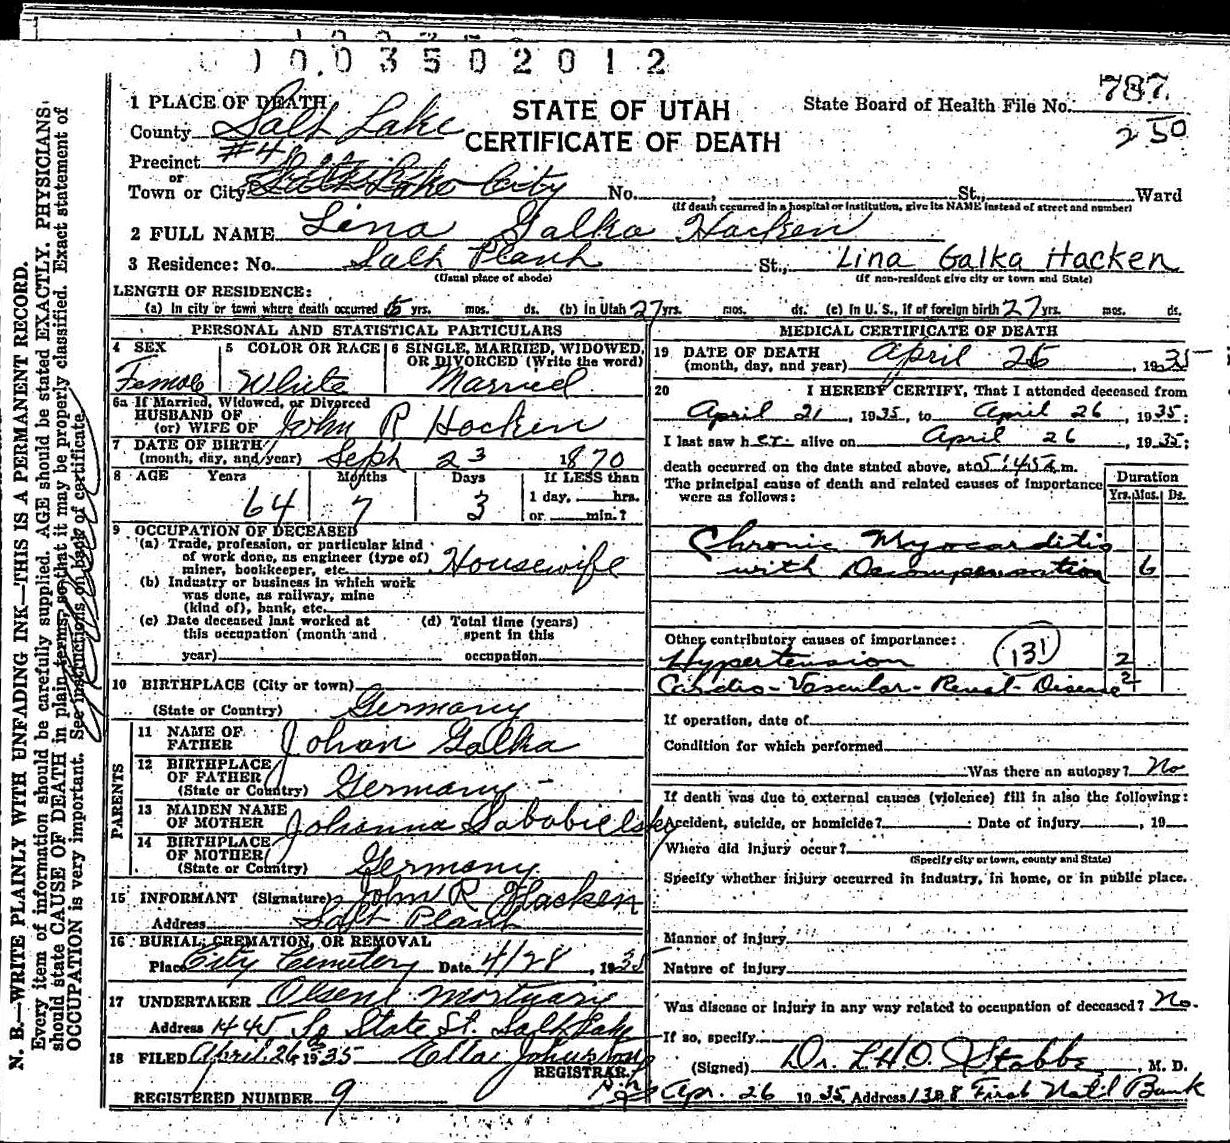 1 0 0 3 5 0 2 0 1 2
787
250
1 PLACE OF DEATH
STATE OF UTAH
CERTIFICATE OF DEATH
State Board of Health File No.
County Salt Lake
Precinct #4
or
Town or City Salt Lake City No. St., Ward
(If death occurred in a hospital or institution, give its NAME instead of street and number)
2 FULL NAME Lina Galka Hacken
3 Residence: No. Salt Plant St., Lina Galka Hacken
(Usual place of abode) (If non-resident give city or town and State)
LENGTH OF RESIDENCE:
(a) In city or town where death occurred yrs. mos. ds. (b) in Utah 27 yrs. mos. ds. (c) In U. S., if of foreign birth 27 yrs. mos. ds.
PERSONAL AND STATISTICAL PARTICULARS
4 SEX 5 COLOR OR RACE 6 SINGLE, MARRIED, WIDOWED,
OR DIVORCED (Write the word)
Female White Married
6a If Married, Widowed, or Divorced
HUSBAND OF
(or) WIFE OF John R Hacken
7 DATE OF BIRTH
(month, day, and year) Sept 23 1870
8 AGE Years Months Days If LESS than
1 day, hrs.
or min.?
64 7 3
9 OCCUPATION OF DECEASED
(a) Trade, profession, or particular kind
of work done, as engineer (type of)
miner, bookkeeper, etc. Housewife
(b) Industry or business in which work
was done, as railway, mine
(kind of), bank, etc.
(c) Date deceased last worked at
this occupation (month and
year)
(d) Total time (years)
spent in this
occupation
10 BIRTHPLACE (City or town)
(State or Country) Germany
PARENTS
11 NAME OF
FATHER Johan Galka
12 BIRTHPLACE
OF FATHER
(State or Country) Germany
13 MAIDEN NAME
OF MOTHER Johanna Sobobielsky
14 BIRTHPLACE
OF MOTHER
(State or Country) Germany
15 INFORMANT (Signature) John R Hacken
Address Salt Plant
16 BURIAL, CREMATION, OR REMOVAL
Place City Cemetery Date 4/28, 1935
17 UNDERTAKER Mortuary
Address So State St. Salt Lake
18 FILED April 26 1935 Ella
REGISTRAR.
REGISTERED NUMBER 9
MEDICAL CERTIFICATE OF DEATH
19 DATE OF DEATH
(month, day, and year) April 26, 1935
20 I HEREBY CERTIFY, That I attended deceased from
April 21, 1935, to April 26, 1935;
I last saw her alive on April 26, 1935;
death occurred on the date stated above, at 5:45 A m.
The principal cause of death and related causes of importance
were as follows:
Duration
Yrs. Mos. Ds.
Chronic Myocarditis
with Decompensation 6
Other contributory causes of importance: 131
Hypertension 2
Cardio-Vascular-Renal-Disease 2
If operation, date of
Condition for which performed
Was there an autopsy? No
If death was due to external causes (violence) fill in also the following:
Accident, suicide, or homicide? Date of injury , 19
Where did injury occur?
(Specify city or town, county and State)
Specify whether injury occurred in industry, in home, or in public place.
Manner of injury
Nature of injury
Was disease or injury in any way related to occupation of deceased? No.
If so, specify
(Signed) Dr. L.H.O. Stobbe, M. D.
Apr. 26 1935 Address 1308 First Nat'l Bank
N. B.—WRITE PLAINLY WITH UNFADING INK—THIS IS A PERMANENT RECORD.
Every item of information should be carefully supplied. AGE should be stated EXACTLY. PHYSICIANS
should state CAUSE OF DEATH in plain terms, so that it may be properly classified. Exact statement of
OCCUPATION is very important. See instructions on back of certificate.